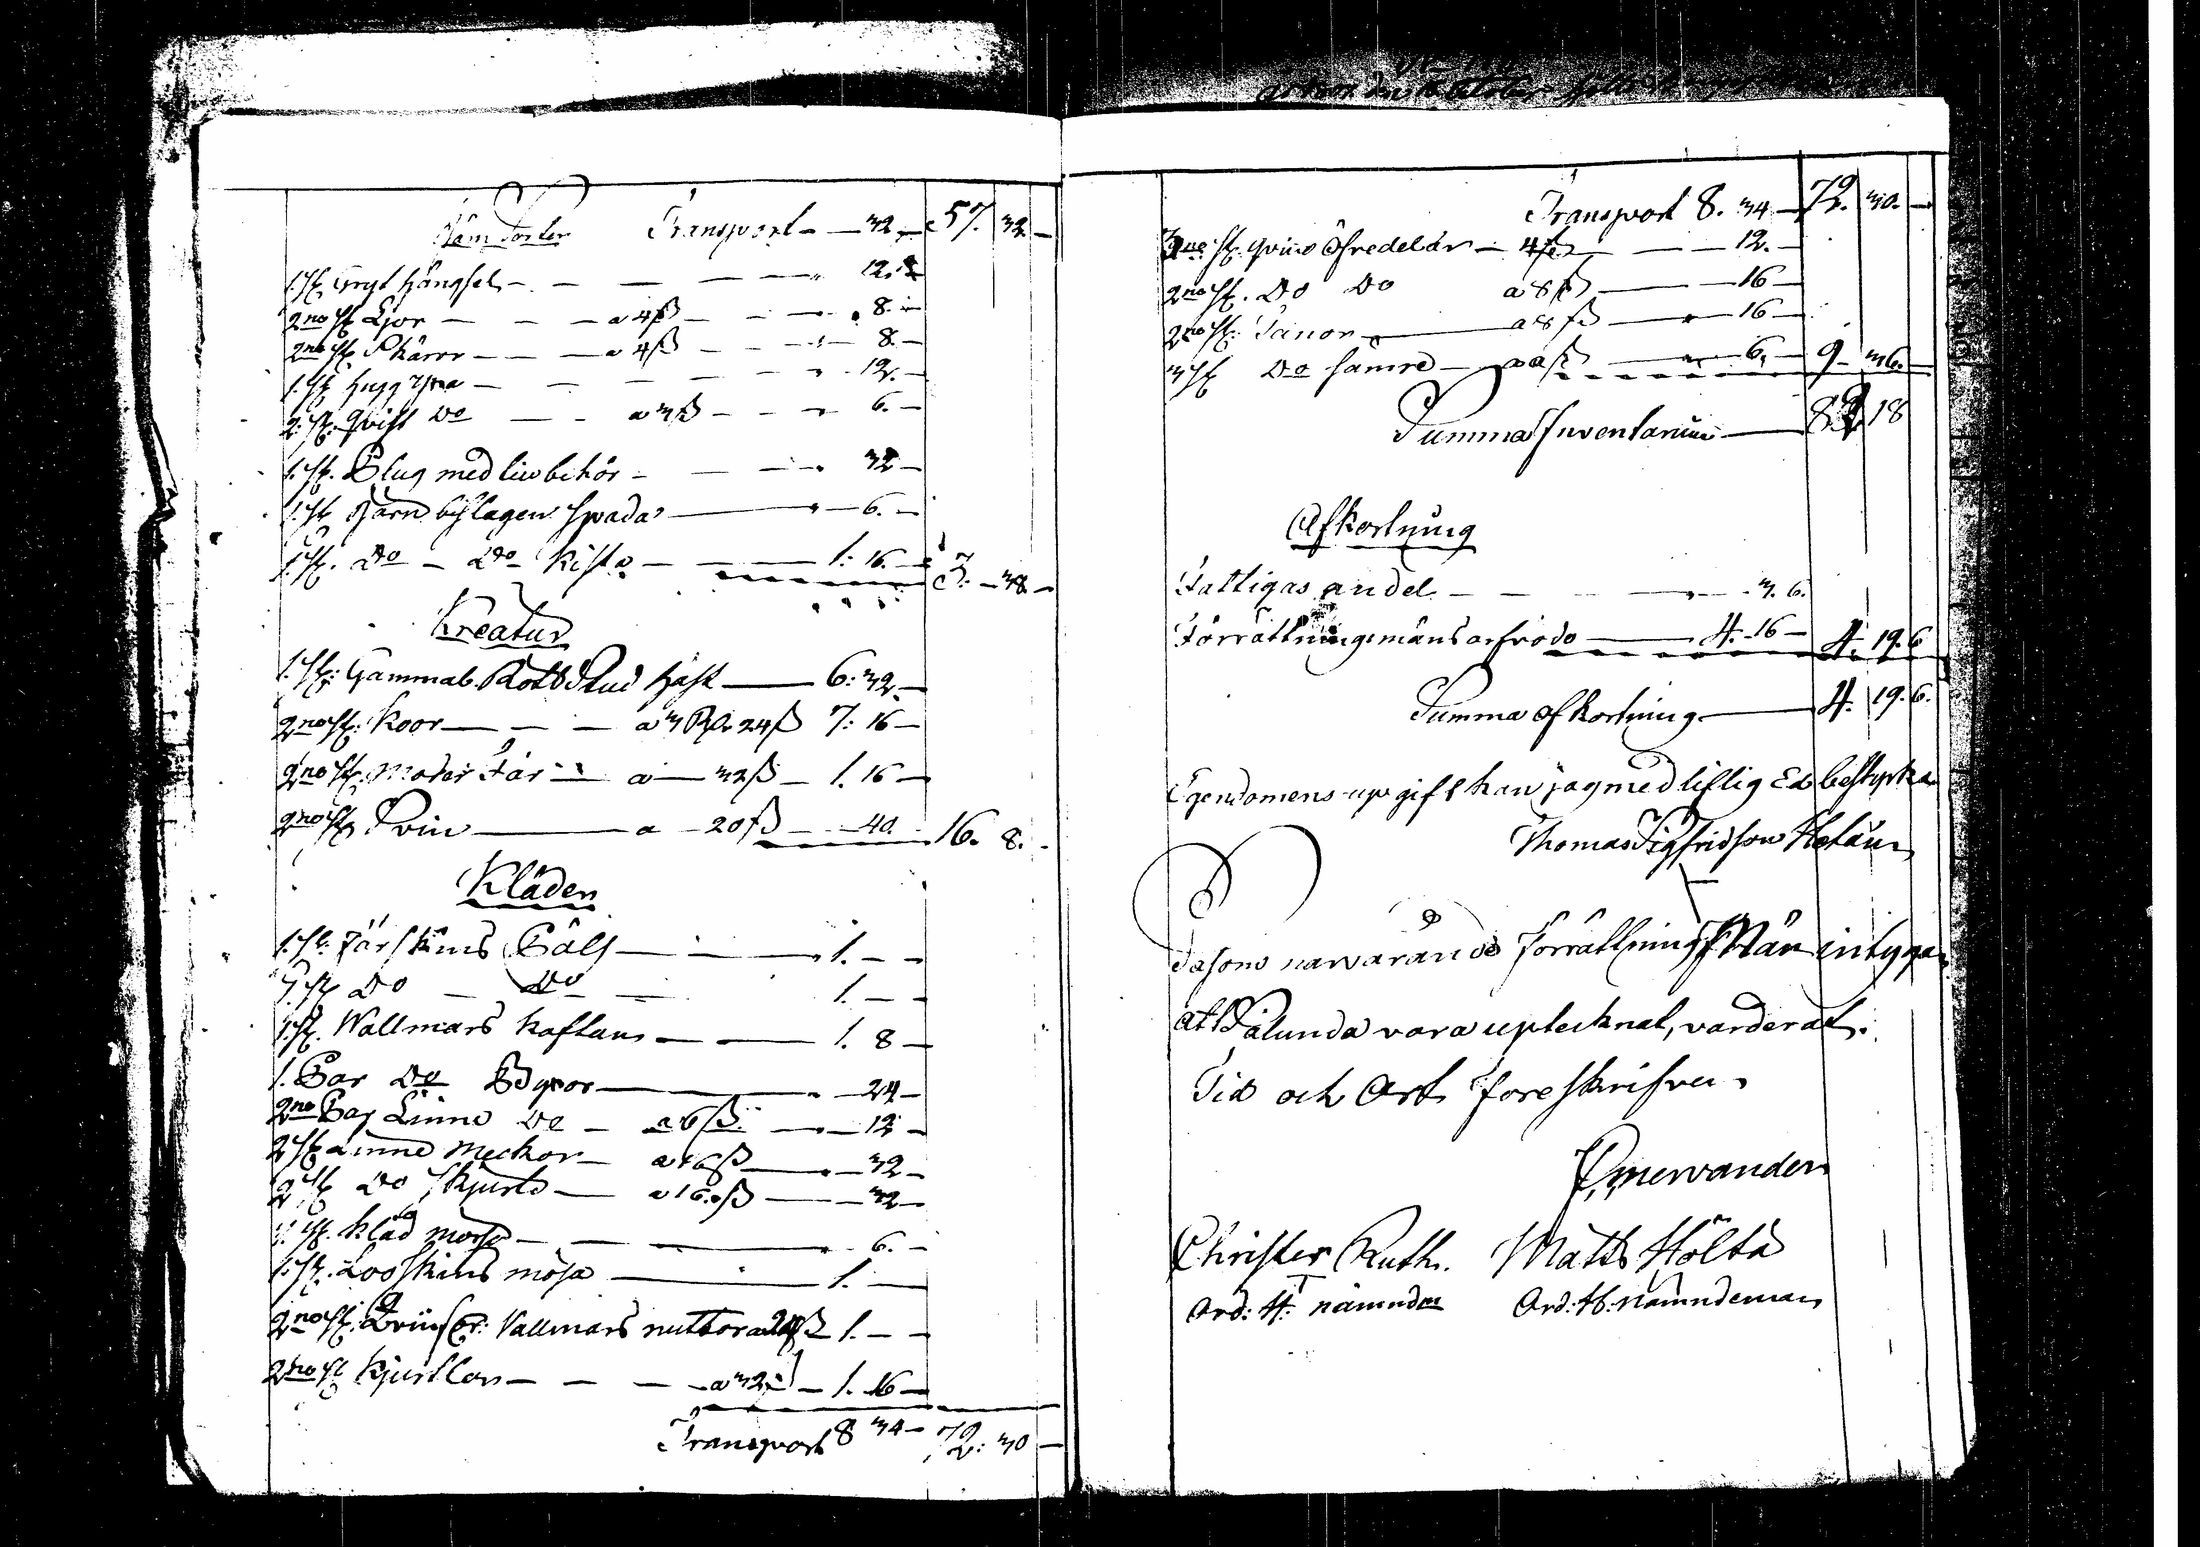 Järnsorter Transport - 32 - 57. 32 -
1. st. Gryt hängsel - 12. -
2ne st. Ljor - a 4 ß - 8. -
2ne st. Skäror - a 4 ß - 8. -
1. st. hugg Yxa - 12. -
2. st. qvist do - a 3 ß - 6. -
1. st. Plug med tilbehör - 32 -
1. st. Järn beslagen spada - 6. -
1. st. do - do kista - 1. 16. - 3. - 38. -
Kreatur
1. st. Gammal Rott Stud häst - 6: 32. -
2ne st. Koor - a 3 Rd 24 ß 7: 16 -
2ne st. Moder Får - a - 32 ß - 1. 16 -
2ne st. Svin - a - 20 ß - 40. - 16. 8. -
Kläden
1. st. Fårskins Päls - 1. - -
1. st. do - do - 1. - -
1. st. Wallmars Kaftan - 1. 8 -
1. Par do Bÿxor - 24 -
2ne Par Linne do - a 6 ß - 12 -
2 st. Linne Meckor - a 16 ß - 32 -
2 st. do skjurto - a 16. ß - 32 -
1. st. Kläd mössa - 6. -
1. st. Looskins mösa - 1. -
2ne st. Wallmars muttor a 24 ß 1. - -
2ne st. Kjurtlar - a 32 ß - 1. 16 -
Transport 8 34 - 72: 30 -
Transport 8. 34 - 72. 30. -
3ne st. qvins Öfredelar - 4 ß - 12. -
2ne st. Do Do a 8 ß - 16 -
2ne st. Lanor - a 8 ß - 16 -
3 st. Do sämre - a 2 ß - 6. - 9 - 36. -
Summa Inventarium - 82 18
Afkortning
Fattigas andel - 3. 6.
Förrättningsmäns arfvode - 4. 16 - 4. 19. 6
Summa afkortning - 4. 19. 6.
Egendomens upgift kan jag med liflig Ed bestyrka
Thomas Sigfridson Hotäin
Dasom narvarande Förrattnings Män intyga
att Sålunda vara uptecknat, värderat.
Tid och Ort foreskrifven.
Christer Ruth. Matts Hölttä
Ord: H: nämndm Ord: H: Nämndeman